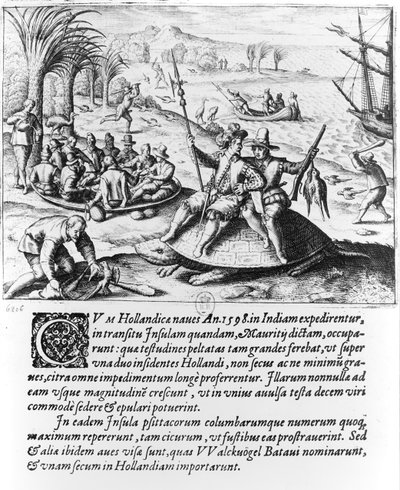 6806
CVM Hollandicæ naues An. 1598. in Indiam expedirentur,
in transitu Insulam quandam, Mauritij dictam, occupa-
runt: quæ testudines peltatas tam grandes ferebat, vt super
vna duo insidentes Hollandi, non secus ac ne minimũ gra-
ues, citra omne impedimentum longè proferrentur. Illarum nonnullæ ad
eam vsque magnitudinẽ crescunt, vt in vnius auulsa testa decem viri
commodè sedere & epulari potuerint.
In eadem Insula psittacorum columbarumque numerum quoq;
maximum repererunt, tam cicurum, vt fustibus eas prostrauerint. Sed
& aliæ ibidem aues visæ sunt, quas VValckuögel Bataui nominarunt,
& vnam secum in Hollandiam importarunt.